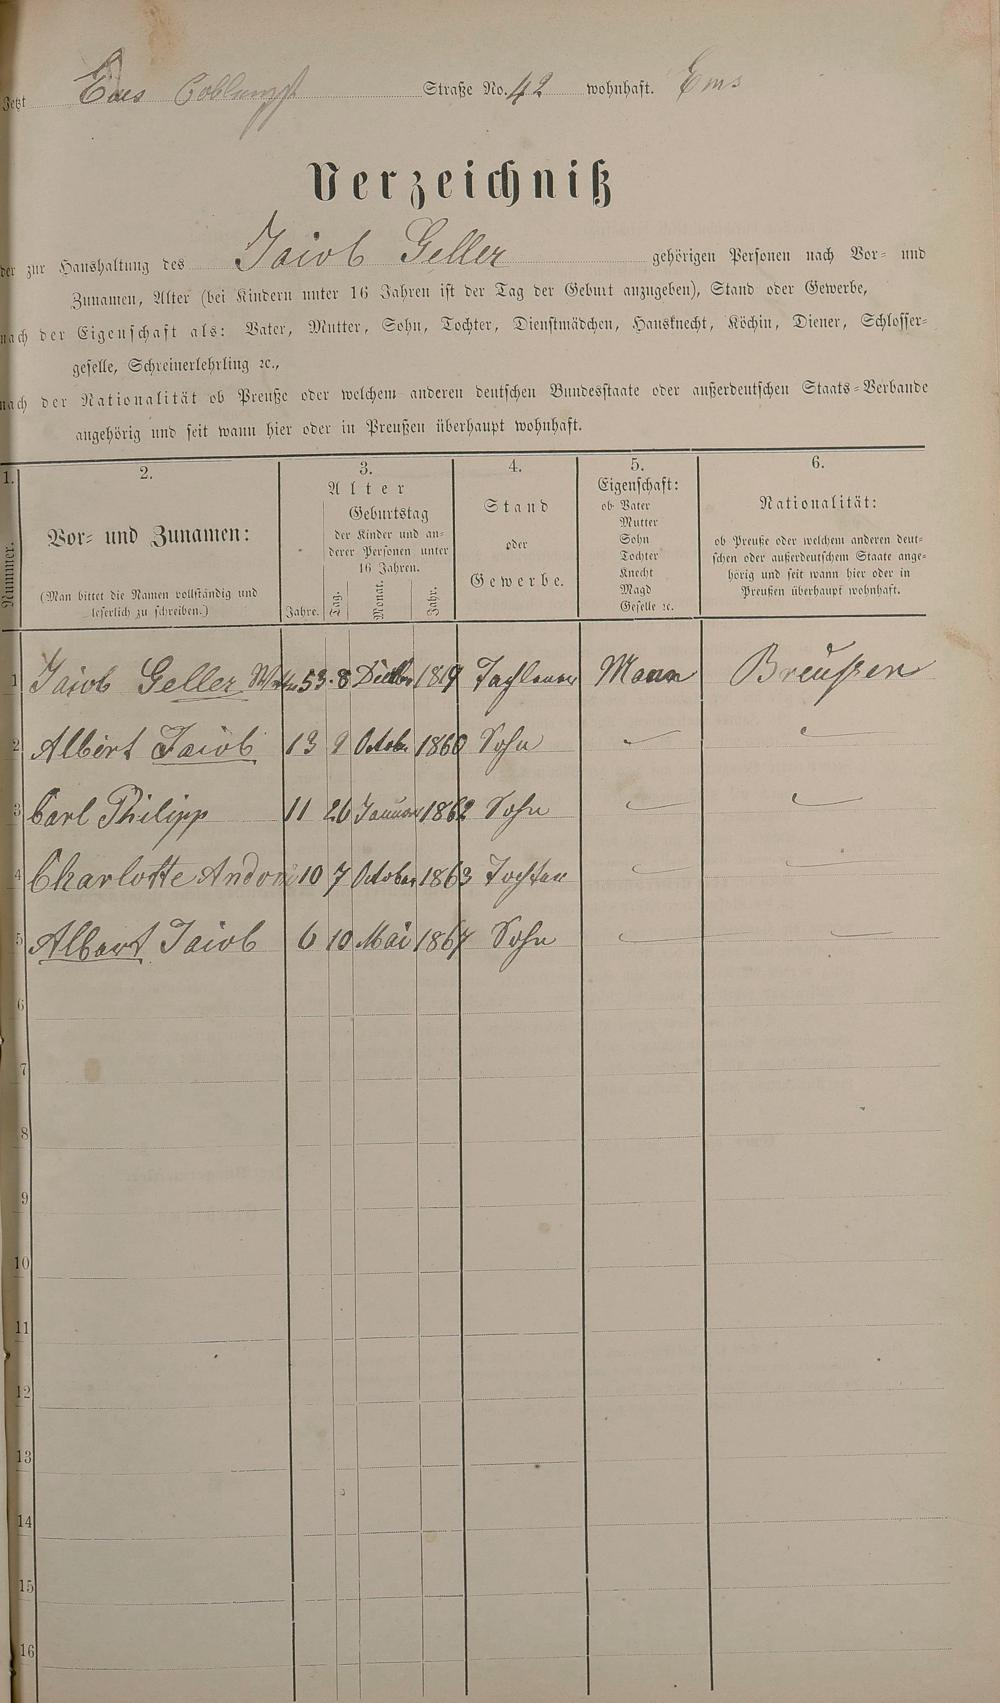 Jetzt Ems Straße No. 42 wohnhaft. Ems
Verzeichniß
der zur Haushaltung des Jaiob Geller gehörigen Personen nach Vor- und
Zunamen, Alter (bei Kindern unter 16 Jahren ist der Tag der Geburt anzugeben), Stand oder Gewerbe,
nach der Eigenschaft als: Vater, Mutter, Sohn, Tochter, Dienstmädchen, Hausknecht, Köchin, Diener, Schlosser-
geselle, Schreinerlehrling ꝛc.,
nach der Nationalität ob Preuße oder welchem anderen deutschen Bundesstaate oder außerdeutschen Staats-Verbande
angehörig und seit wann hier oder in Preußen überhaupt wohnhaft.
1.
Nummer.
2.
Vor- und Zunamen:
(Man bittet die Namen vollständig und
leserlich zu schreiben.)
3.
Alter
Jahre.
Geburtstag
der Kinder und an-
derer Personen unter
16 Jahren.
Tag. Monat. Jahr.
4.
Stand
oder
Gewerbe.
5.
Eigenschaft:
ob Vater
Mutter
Sohn
Tochter
Knecht
Magd
Geselle ꝛc.
6.
Nationalität:
ob Preuße oder welchem anderen deut-
schen oder außerdeutschem Staate ange-
hörig und seit wann hier oder in
Preußen überhaupt wohnhaft.
1 Jaiob Geller 53 8 1819 Mann Breußen
2 Albert Jaiob 13 9 Octobr 1860 Sohn
3 Carl Philipp 11 26 Januar 1862 Sohn
4 Charlotte 10 7 October 1863 Tochter
5 Albert Jaiob 6 10 Mai 1867 Sohn
6
7
8
9
10
11
12
13
14
15
16